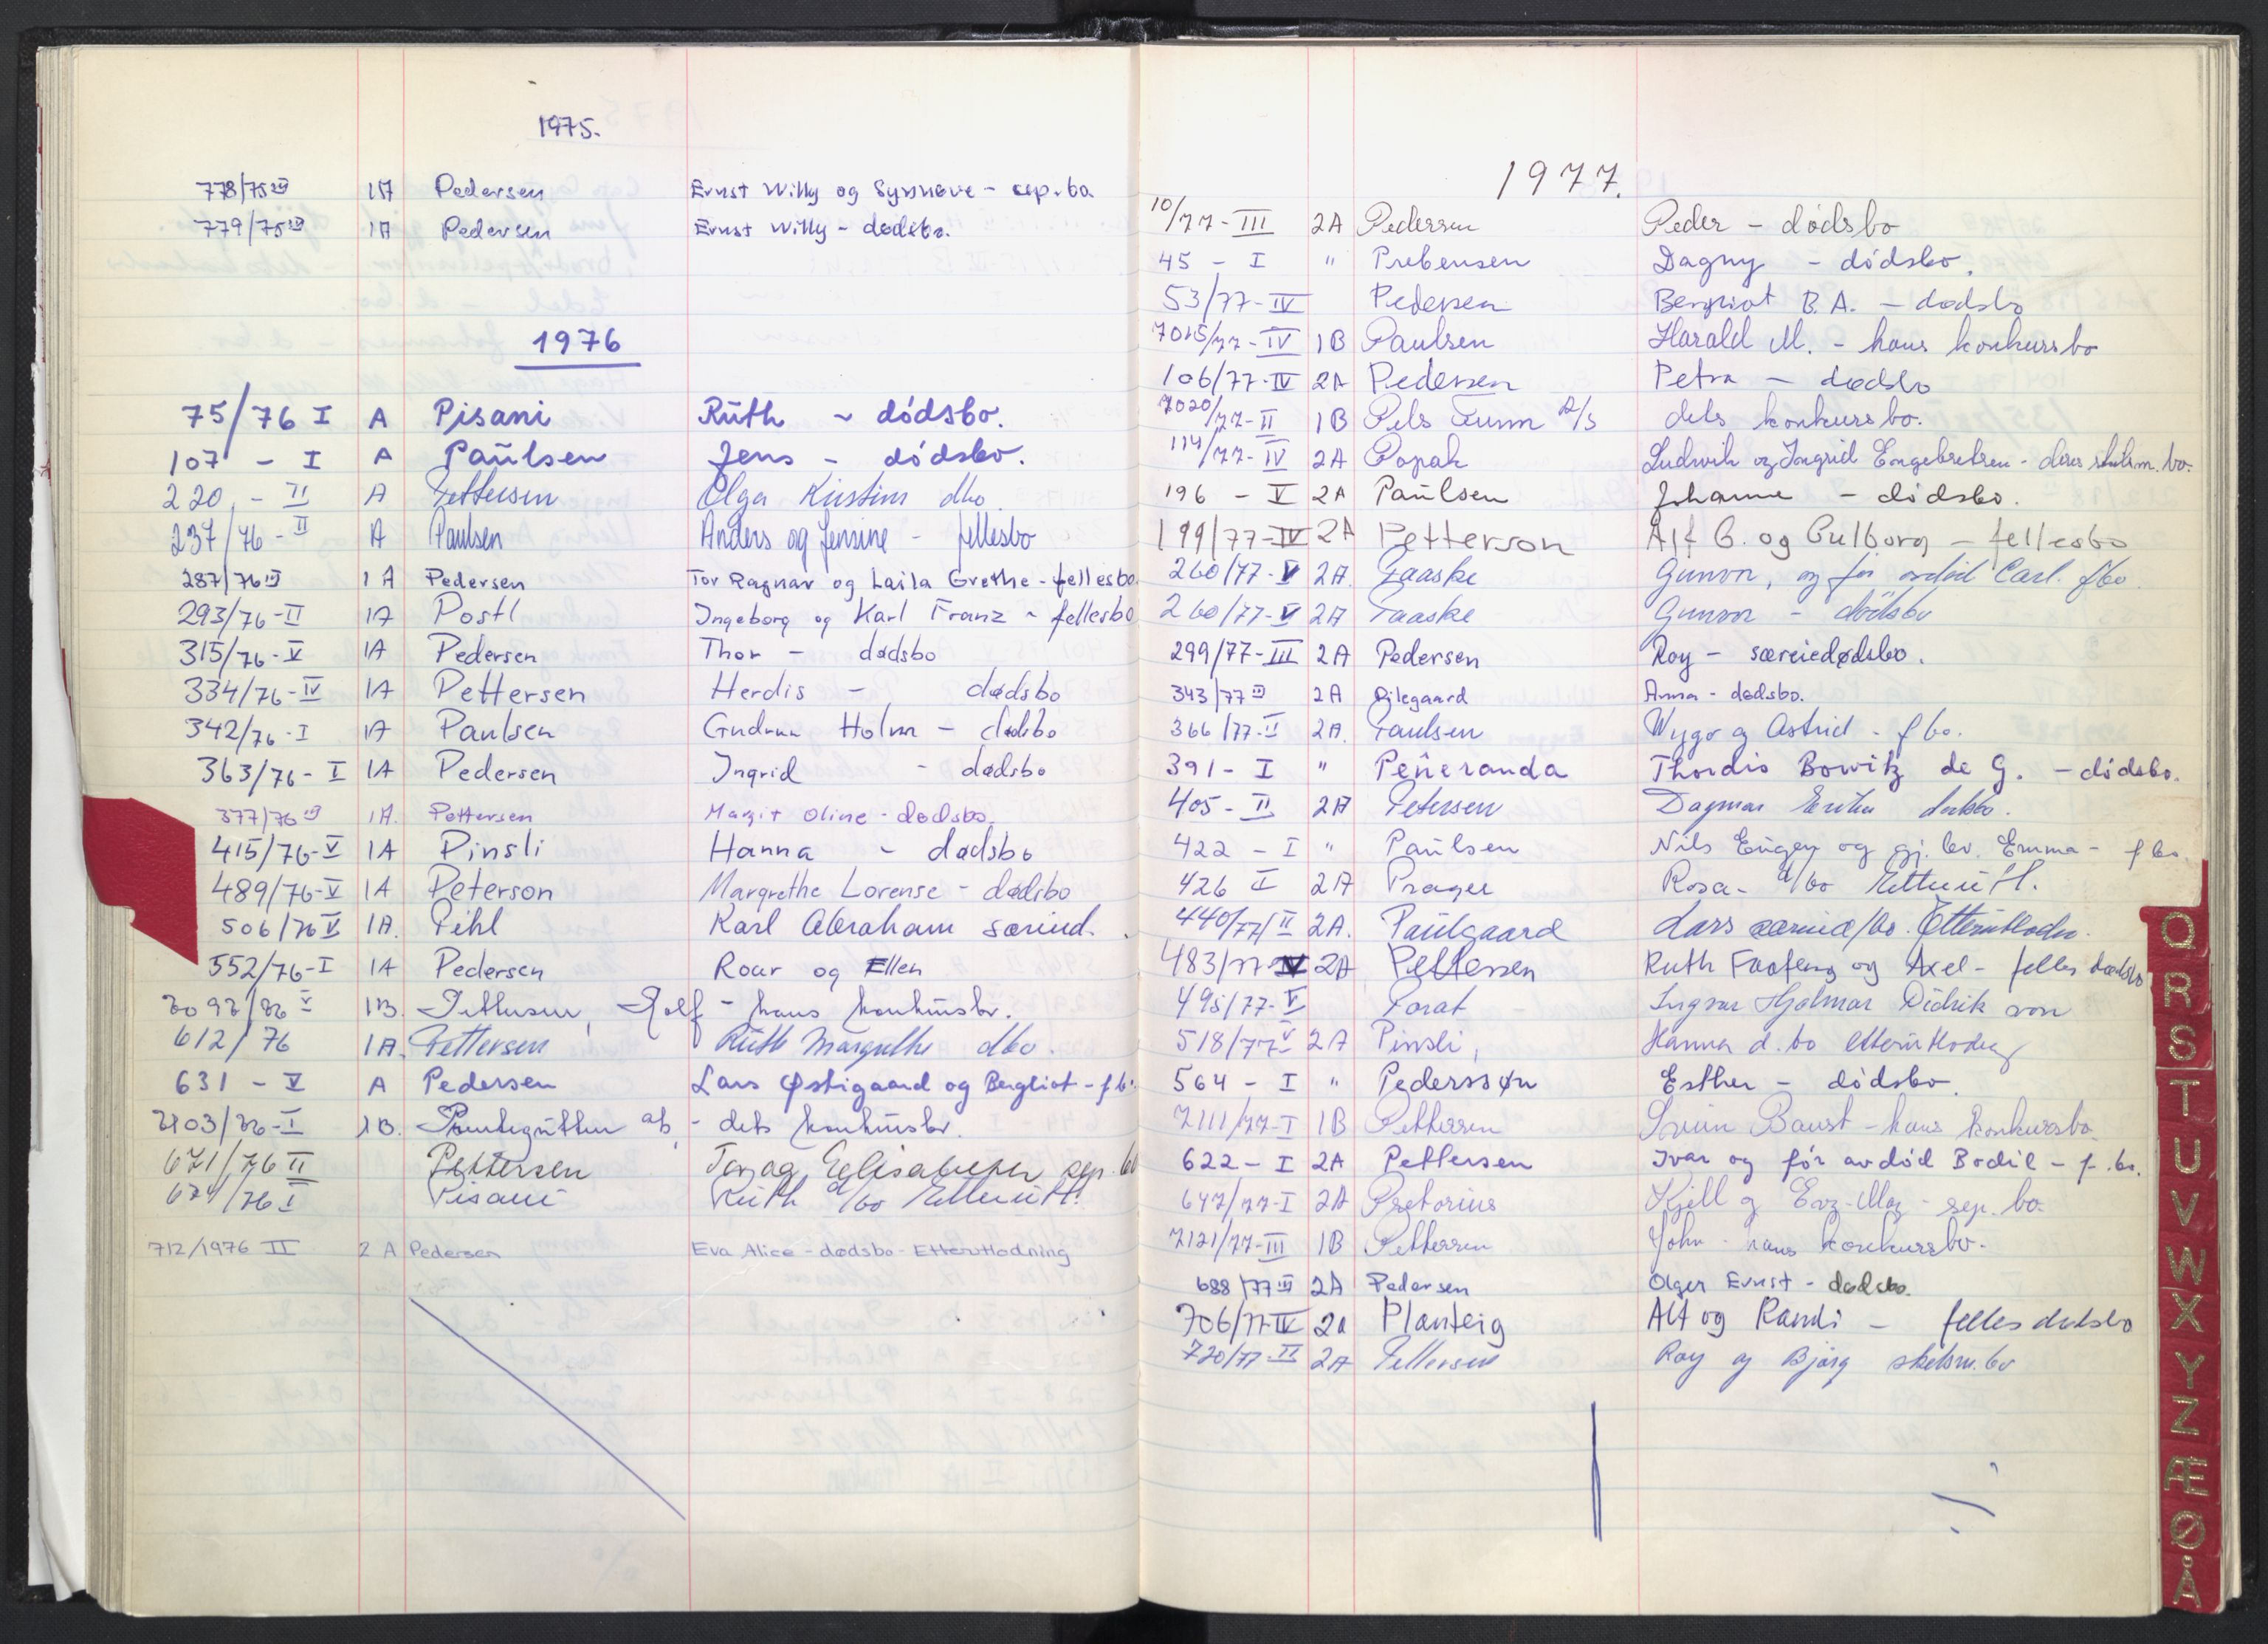 1975.
778/75 III 1A Pedersen Ernst Willy og Synnøve - sep.bo
779/75 III 1A Pedersen Ernst Willy - dødsbo.
1976
75/76 I A Pisani Ruth - dødsbo.
107 - I A Paulsen Jens - dødsbo.
220 - II A Pettersen Olga Kirstine dbo
237/76 - II A Paulsen Anders og Jensine - fellesbo
287/76 III 1A Pedersen Tor Ragnar og Laila Grethe - fellesbo
293/76 - II 1A Postl Ingeborg og Karl Franz - fellesbo
315/76 - V 1A Pedersen Thor - dødsbo
334/76 - IV 1A Pettersen Herdis - dødsbo
342/76 - I 1A Paulsen Gudrun Holm - dødsbo
363/76 - I 1A Pedersen Ingrid - dødsbo
377/76 III 1A. Pettersen Margit Oline - dødsbo.
415/76 - V 1A Pinsli Hanna - dødsbo
489/76 - V 1A Peterson Margrethe Lorense - dødsbo
506/76 V 1A. Pihl Karl Abraham særeied.
552/76 - I 1A Pedersen Roar og Ellen
1B. Pettersen, Rolf - hans konkursbo.
612/76 1A. Pettersen Ruth Margrethe dbo.
631 - V A Pedersen Lars Østigaard og Bergliot - f.bo.
1B. - dets konkursbo.
671/76 II Pettersen sep. bo
674/76 I Pisani Ruth d/bo Etterutl.
712/1976 II 2 A Pedersen Eva Alice - dødsbo - Etterutlodning
1977.
10/77 - III 2A Pedersen Peder - dødsbo
45 - I " Prebensen Dagny - dødsbo.
53/77 - IV Pedersen Bergliot B.A. - dødsbo
7015/77 - IV 1B Paulsen Harald M. - hans konkursbo
106/77 - IV 2A Pedersen Petra - dødsbo
7020/77 - II 1B Pels Furum A/S dets konkursbo.
114/77 - IV 2A Popah Ludwik og Ingrid Engebretsen - deres skilsm. bo.
196 - V 2A Paulsen Johanne - dødsbo.
199/77 - IV 2A Petterson Alf G. og Gulborg - fellesbo
260/77 - V 2A. Paaske Gunvor, og før avdød Carl. fbo.
260/77 - V 2A Paaske Gunvor - dødsbo
299/77 - III 2A Pedersen Roy - særeiedødsbo.
343/77 III 2A Pilegaard Anna - dødsbo.
366/77 - II 2A. Paulsen Wygo og Astrid - f bo.
391 - I " Peñeranda Thordis Bowitz de G. - dødsbo.
405 - II 2A Petersen Dagmar Erika dødsbo.
422 - I " Paulsen Nils Eugen og gj. lev. Emma - f bo.
426 II 2A Prager Rosa - d/bo Etterutl.
440/77/II 2A. Paulgaard Lars særeie d/bo. Etterutlodn.
483/77 - IV 2A Pettersen Ruth Faafeng og Axel - felles dødsbo
495/77 - V Porat Ingvar Hjalmar Didrik von
518/77 - V 2A Pinsli, Hanna d. bo etterutlodning
564 - I " Pederssøn Esther - dødsbo.
7111/77 - I 1B Pettersen Svein Baust - hans konkursbo
622 - I 2A Pettersen Ivar og før avdød Bodil - f. bo.
647/77 - I 2A Pretorius Kjell og Eva-May - sep. bo.
7121/77 - III 1B Pettersen John - hans konkursbo.
688/77 III 2A Pedersen Olger Ernst - dødsbo.
706/77 IV 2a Planteig Alf og Randi - felles dødsbo
720/77 - II 2A Pettersen Roy og Bjørg skilsm. bo
Q
R
S
T
U
V
W
X
Y
Z
Æ
Ø
Å